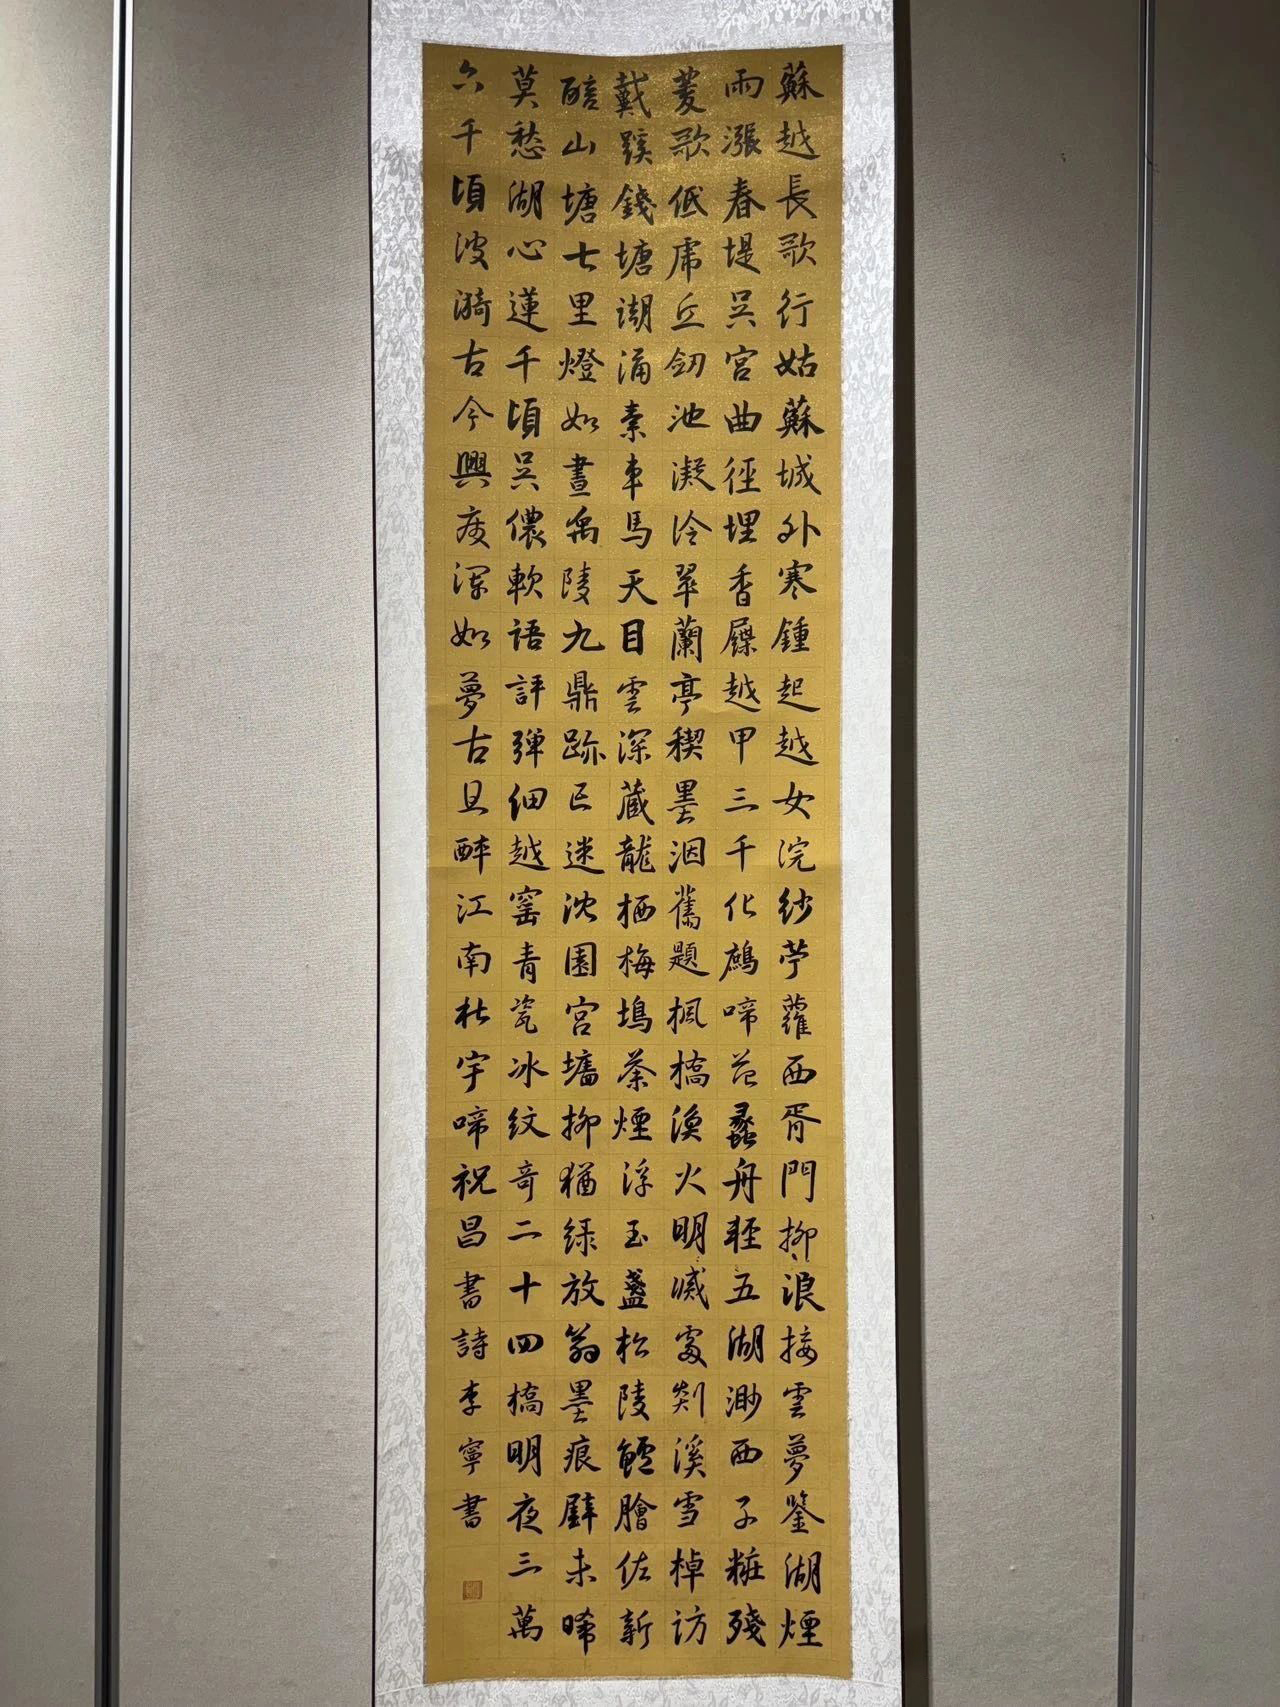 蘇越長歌行姑蘇城外寒鍾起越女浣紗苧蘿西胥門柳浪接雲夢鑒湖煙
雨漲春堤吴宮曲徑埋香屧越甲三千化鷓啼范蠡舟輕五湖渺西子粧殘
菱歌低虎丘劒池凝冷翠蘭亭稧墨洇舊題楓橋漁火明滅處剡溪雪棹訪
戴蹊錢塘湖涌素車馬天目雲深藏龍栖梅塢茶煙浮玉盞松陵鱸膾佐新
醅山塘七里燈如晝禹陵九鼎跡已迷沈園宮墻柳猶緑放翁墨痕壁未晞
莫愁湖心蓮千頃吴儂軟語評弹細越窰青瓷冰紋奇二十四橋明夜三萬
六千頃波漪古今興废渾如夢古且醉江南杜宇啼祝昌書詩李寧書